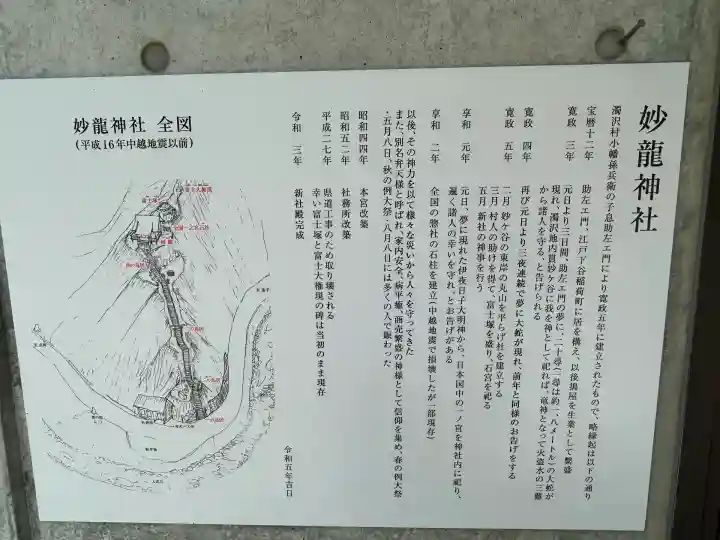 妙龍神社
濁沢村小幡孫兵衛の子息助左エ門により寛政五年に建立されたもので、略縁起は以下の通り
宝暦十二年 助左エ門、江戸下谷稲荷町に居を構え、以後塙屋を生業として繫盛
寛政 三年 元日より三日間、助左エ門の夢に、二十尋(二尋は約一、八メートル)の大蛇が
現れ、濁沢地内貫妙ケ谷に我を神として祀れば、竜神となって火盗水の三難
から諸人を守る、と告げられる
寛政 四年 再び元日より三夜連続で夢に大蛇が現れ、前年と同様のお告げをする
寛政 五年 二月 妙ケ谷の東岸の丸山を平らげ社を建立する
三月 村人の助けを得て、富士塚を盛り、石宮を祀る
五月 新社の神事を行う
享和 元年 元日、夢に現れた伊夜日子大明神から、日本国中の一ノ宮を神社内に祀り、
遍く諸人の幸いを守れ、とお告げがある
享和 二年 全国の惣社の石柱を建立(中越地震で損壊したが一部現存)
以後、その神力を以て様々な災いから人々を守ってきた
また、別名弁天様と呼ばれ、家内安全、病平癒、商売繁盛の神様として信仰を集め、春の例大祭
・五月八日、秋の例大祭・八月八日には多くの人で賑わった
昭和四四年 本宮改築
昭和五二年 社務所改築
平成二七年 県道工事のため取り壊される
幸い富士塚と富士大権現の碑は当初のまま現存
令和 三年 新社殿完成
令和五年吉日
妙龍神社 全図
(平成16年中越地震以前)